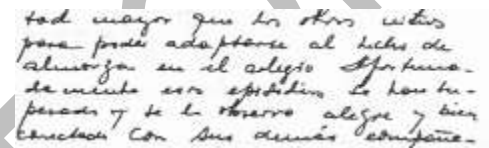 tad mayor que los otros niños
para poder adaptarse al hecho de
almorzar en el colegio. Afortuna-
damente esos episodios se han su-
perado y se le observa alegre y bien
conectado con sus demás compañe-